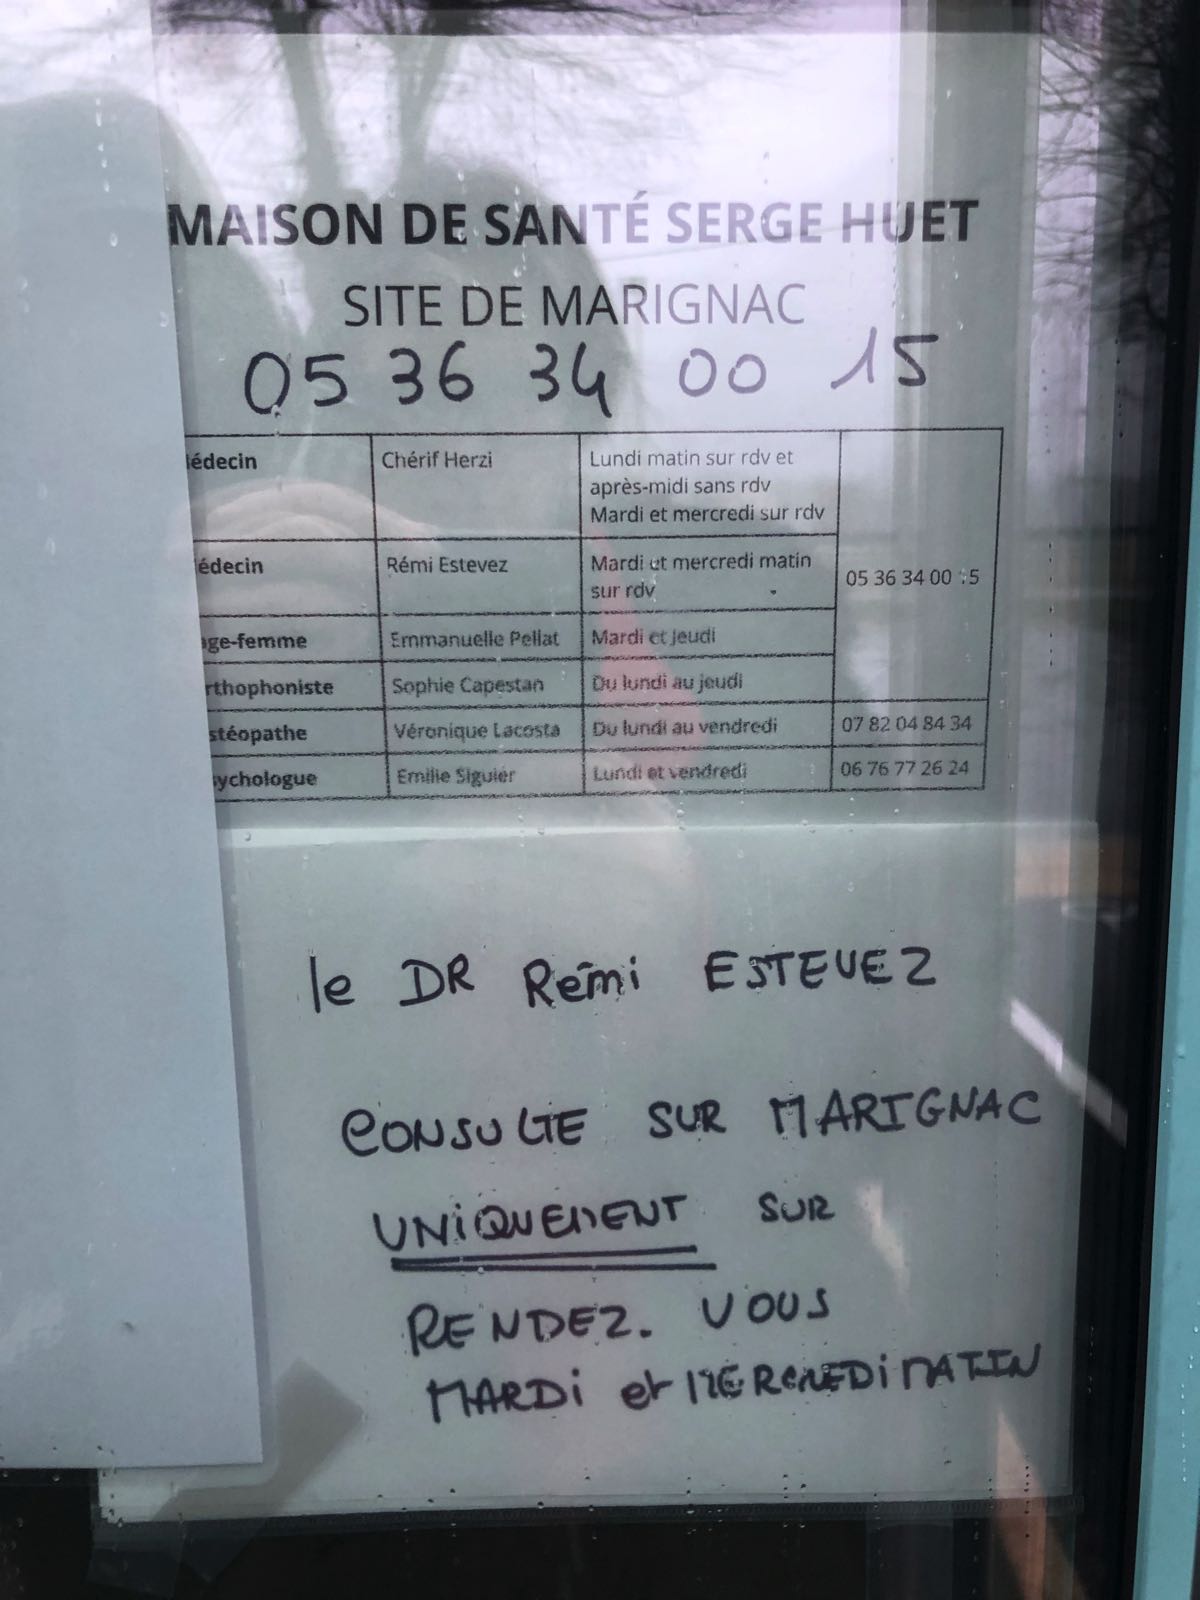 MAISON DE SANTÉ SERGE HUET
SITE DE MARIGNAC
05 36 34 00 15
édecin Chérif Herzi Lundi matin sur rdv et
après-midi sans rdv
Mardi et mercredi sur rdv
édecin Rémi Estevez Mardi et mercredi matin
sur rdv
05 36 34 00 15
ge-femme Emmanuelle Pellat Mardi et jeudi
rthophoniste Sophie Capestan Du lundi au jeudi
stéopathe Véronique Lacosta Du lundi au vendredi 07 82 04 84 34
sychologue Emilie Siguier Lundi et vendredi 06 76 77 26 24
le DR Rémi ESTEVEZ
CONSULTE SUR MARIGNAC
UNiQUEMENT SUR
RENDEZ. VOUS
MARDi et MERCREDi MATIN